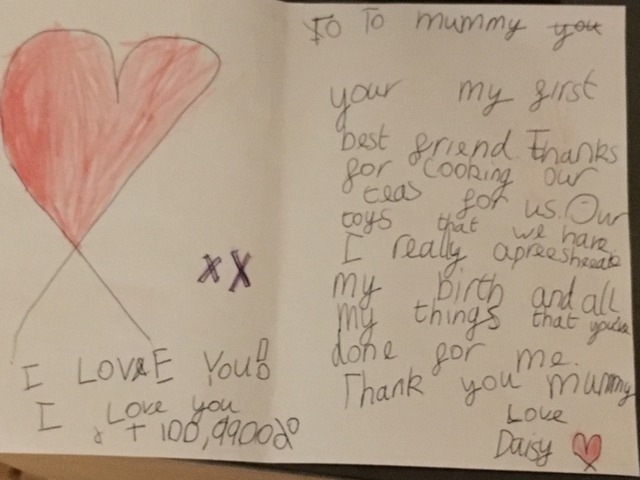 xX
I LOVE YOU!!
I Love you
+ 100,99002
To To mummy you
your my first
best friend. Thanks
for cooking our
teas for us. Our
toys that we have.
I really apreesheate
my birth and all
my things that you've
done for me.
Thank you mummy
Love
Daisy